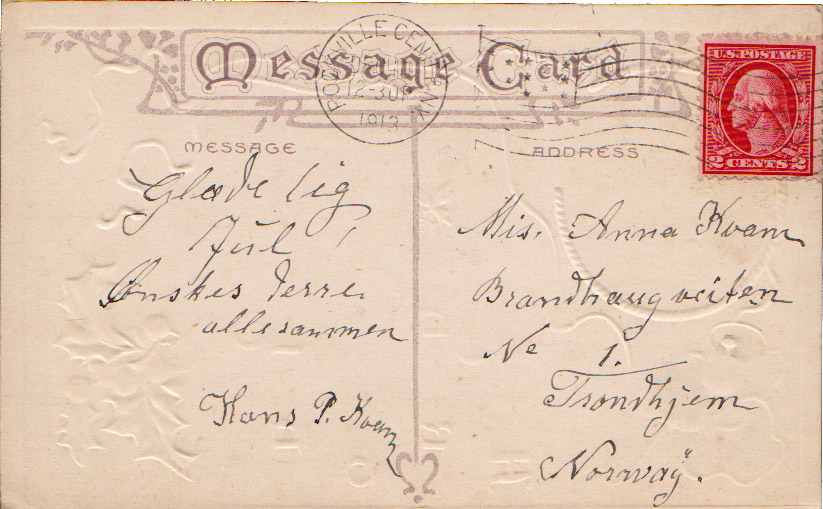 Message Card
ROCKVILLE CENTRE, N.Y.
12-30P
1913
U.S. POSTAGE
2 CENTS 2
MESSAGE
ADDRESS
Glædelig
Jul!
Ønskes derre
allesammen
Hans P. Kvam
Mis. Anna Kvam
Brandhaugveiten
No 1.
Trondhjem
Norway.